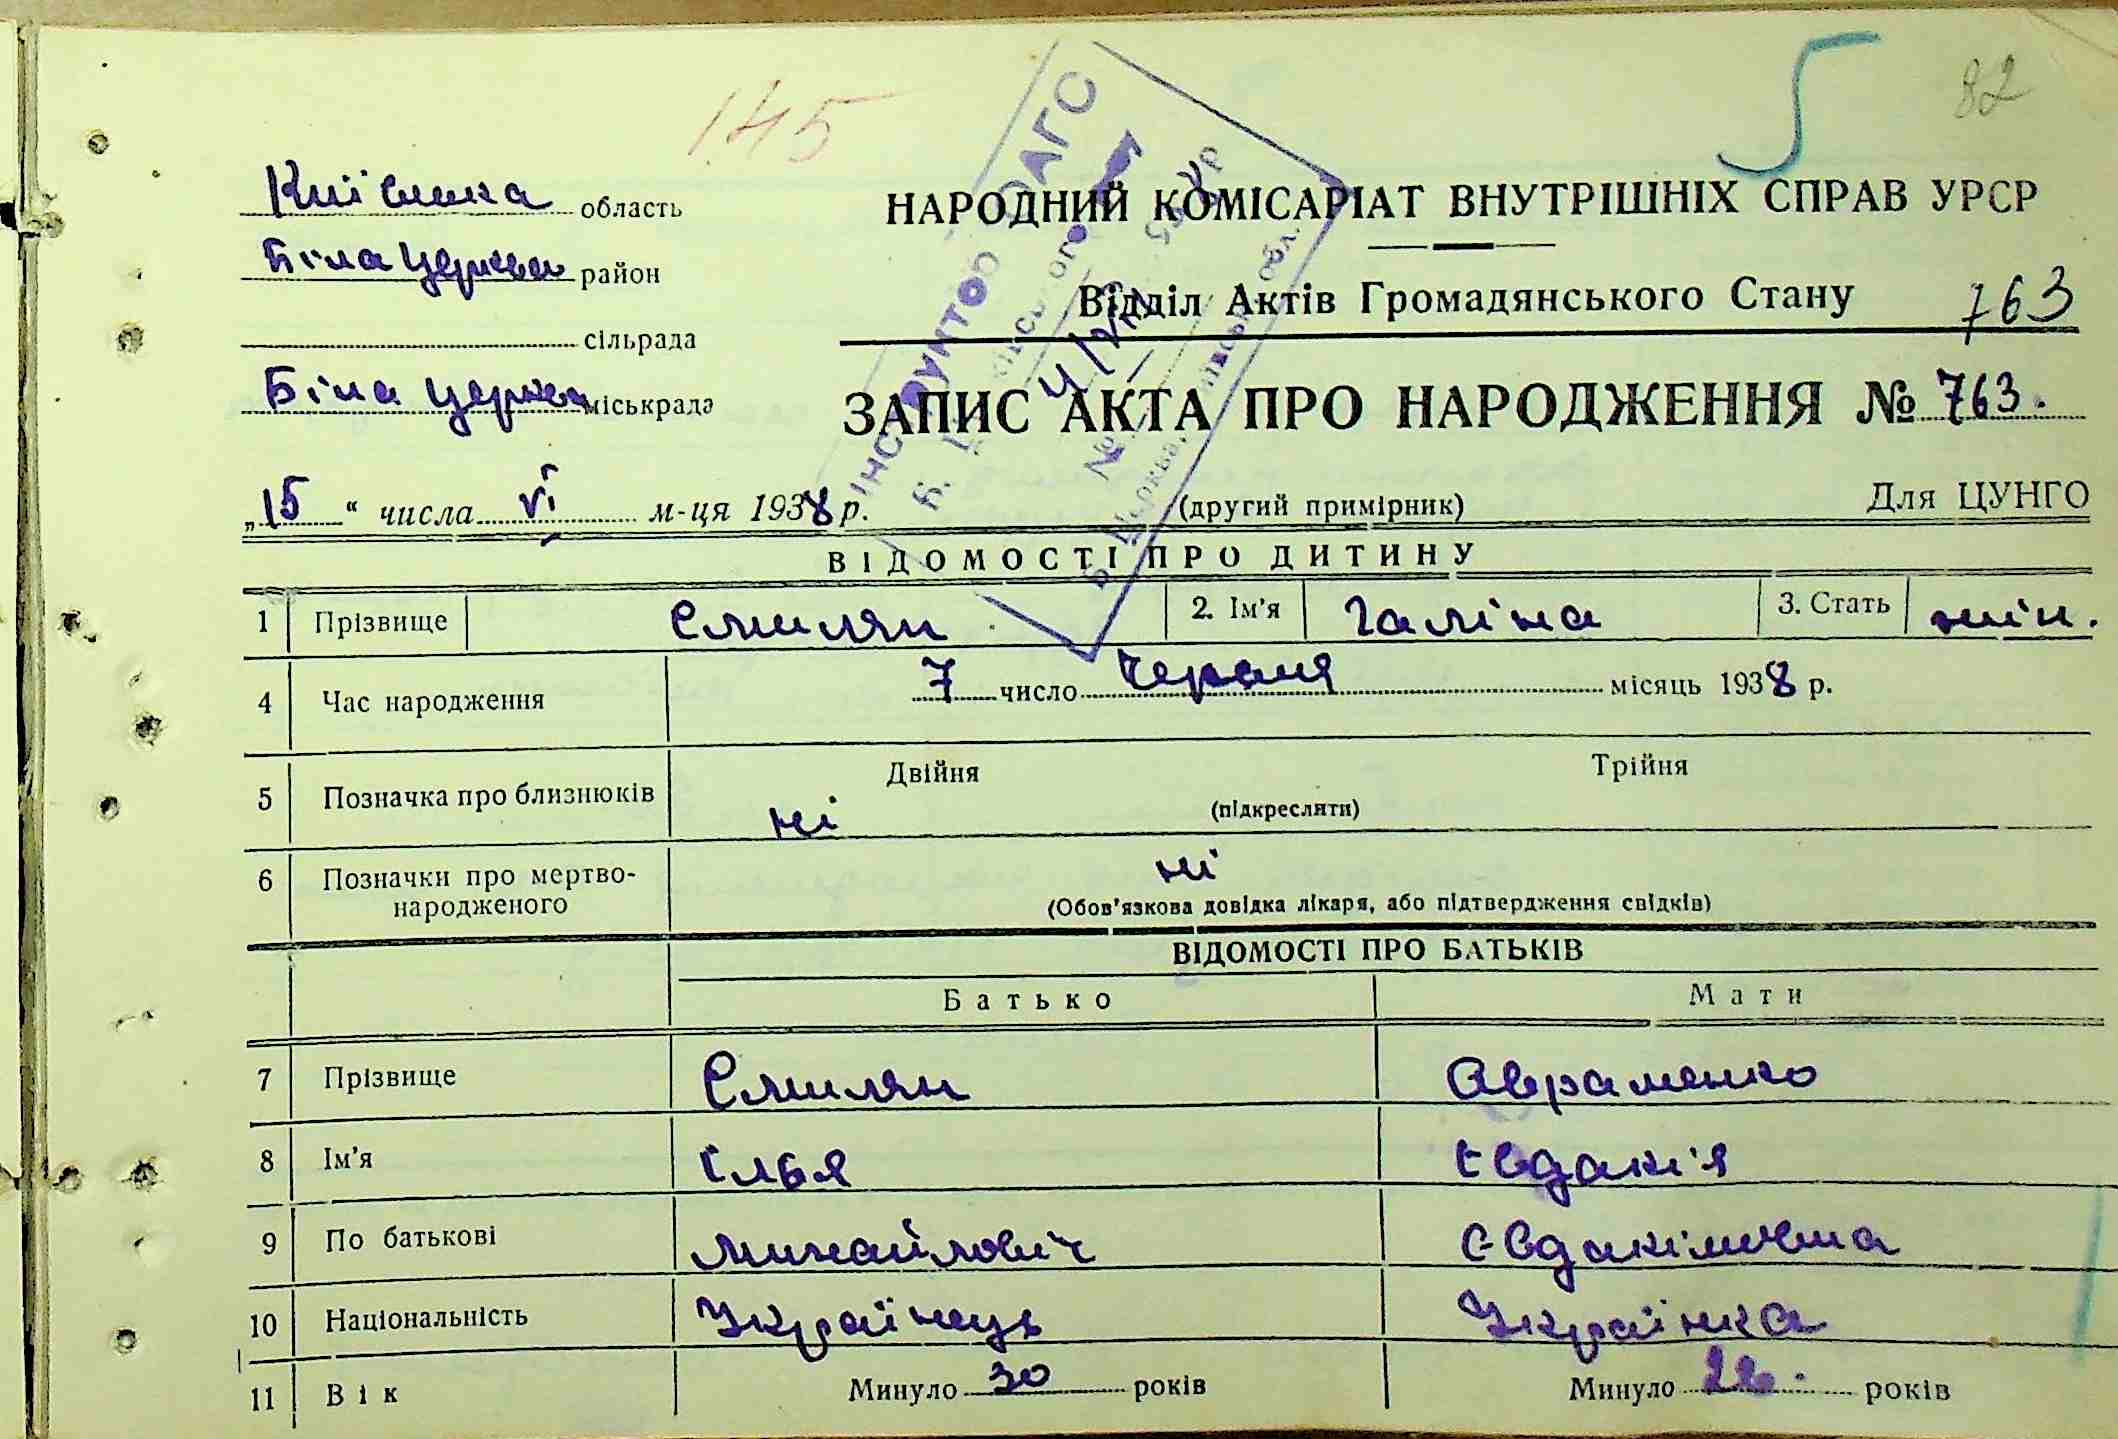 145
5
82
Київська область
Біла Церква район
сільрада
Біла Церква міськрада
НАРОДНИЙ КОМІСАРІАТ ВНУТРІШНІХ СПРАВ УРСР
Відділ Актів Громадянського Стану 763
ЗАПИС АКТА ПРО НАРОДЖЕННЯ № 763.
„15“ числа VI м-ця 1938 р. (другий примірник) Для ЦУНГО
ВІДОМОСТІ ПРО ДИТИНУ
1 Прізвище Смилян 2. Ім'я Галіна 3. Стать жін.
4 Час народження 7 число Червня місяць 1938 р.
5 Позначка про близнюків Двійня Трійня
ні (підкреслити)
6 Позначки про мертво- ні
народженого (Обов'язкова довідка лікаря, або підтвердження свідків)
ВІДОМОСТІ ПРО БАТЬКІВ
Батько Мати
7 Прізвище Смилян Авраменко
8 Ім'я Ілья Євдакія
9 По батькові Михайлович Євдакімовна
10 Національність Українець Українка
11 Вік Минуло 30 років Минуло 22 років